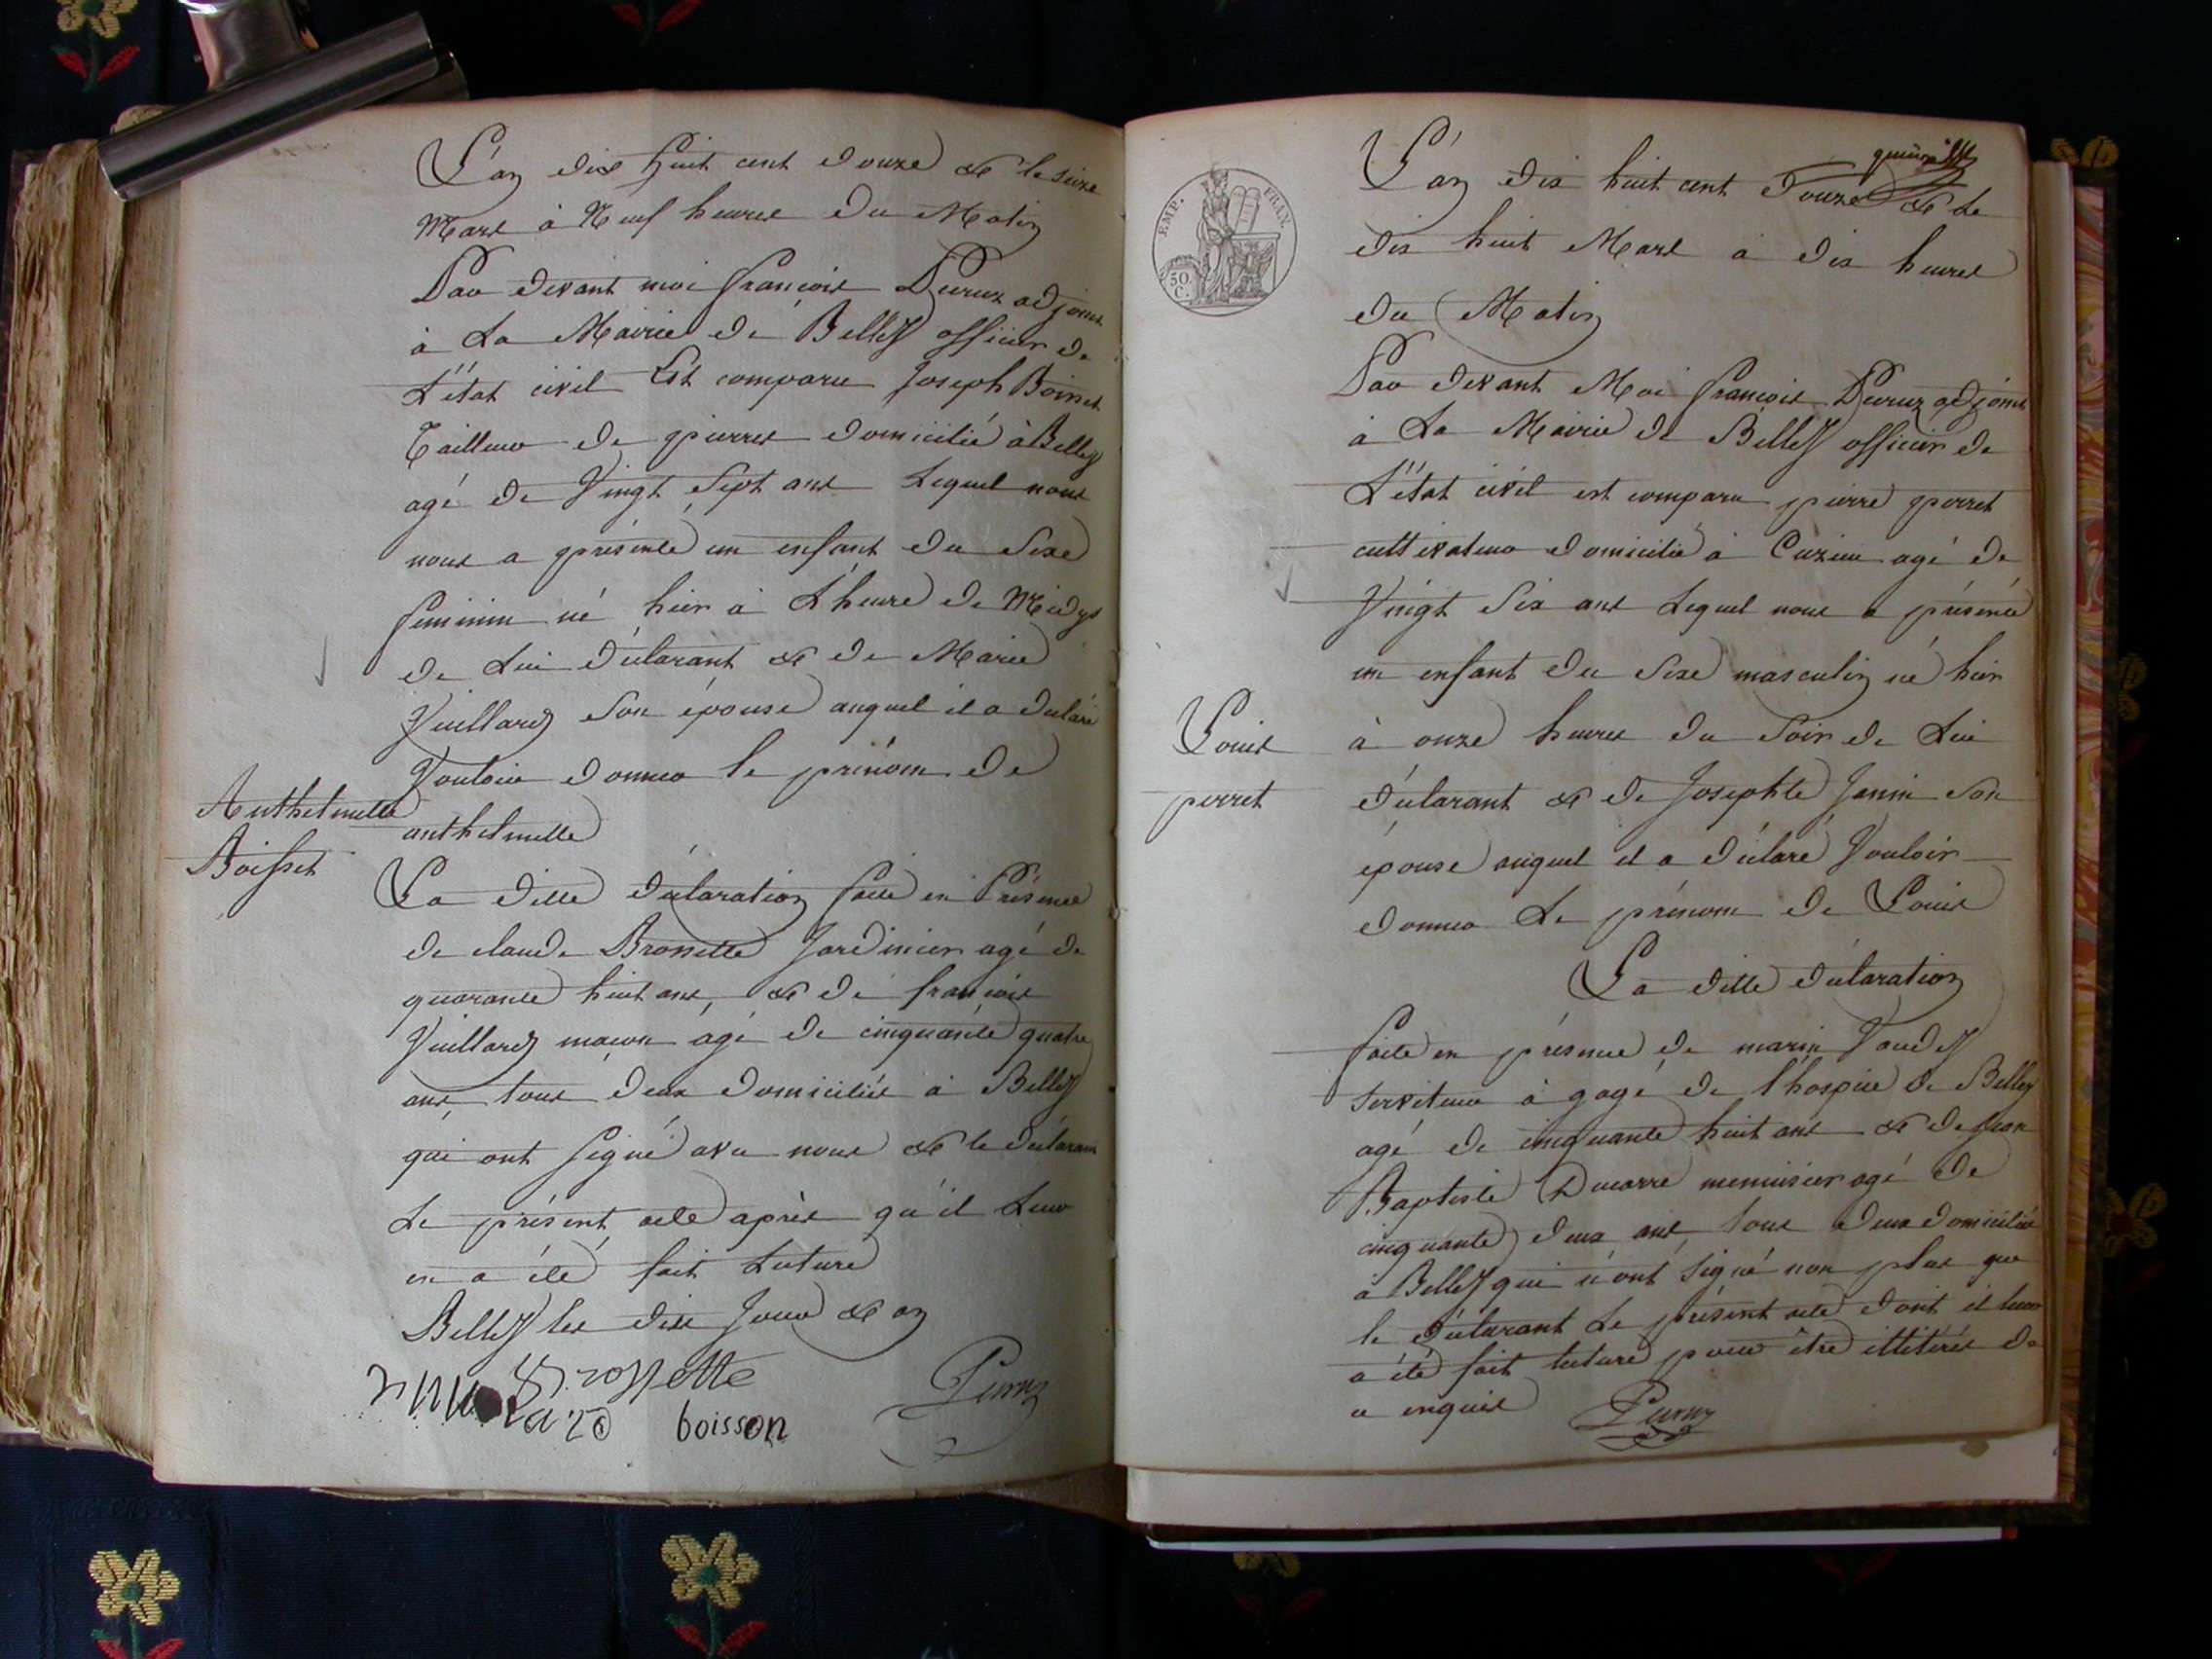 L'an dix huit cent douze & le seize
Mars à Neuf heures du Matin
Par devant moi françois Peruz adjoint
à La Mairie de Belley officier de
L'état civil Est comparu Joseph
Tailleur de pierres domicilié à Belley
agé de Vingt Sept ans Lequel nous
nous a présenté un enfant du Sexe
feminin né hier à L'heure de Midy
de Lui déclarant & de Marie
Vuillard Son épouse auquel il a déclaré
Vouloir donner le prénom de
anthelmette
Anthelmette
Boisset
La ditte déclaration faite en Présence
de claude Brossette Jardinier agé de
quarante huit ans, & de françois
Vuillard maçon agé de cinquante quatre
ans, tous deux domiciliés à Belley
qui ont signé avec nous & le déclarant
Le présent acte après qu'il Leur
en a été fait Lecture
Belley les dits Jour & an
Brossette
boisson
Peruz
EMP. FRAN.
50 C.
L'an dix huit cent Douze & Le
dix huit Mars à dix heures
du Matin
Par devant Moi françois Peruz adjoint
à La Mairie de Belley officier de
L'état civil est comparu pierre perret
cultivateur domicilié à Cuzieu agé de
Vingt Six ans Lequel nous a présenté
un enfant du Sexe masculin né hier
à onze heures du Soir de Lui
déclarant & de Josephte Janin Son
épouse auquel il a déclaré Vouloir
donner Le prénom de Louis
Louis
perret
La ditte déclaration
faite en présence de marin
serviteur à gage de l'hospice de Belley
agé de cinquante huit ans & de Jean
Baptiste Ducarre menuisier agé de
cinquante deux ans tous deux domiciliés
à Belley qui n'ont signé non plus que
le déclarant Le présent acte dont il leur
a été fait lecture pour être illitérés de
ce enquis
Peruz